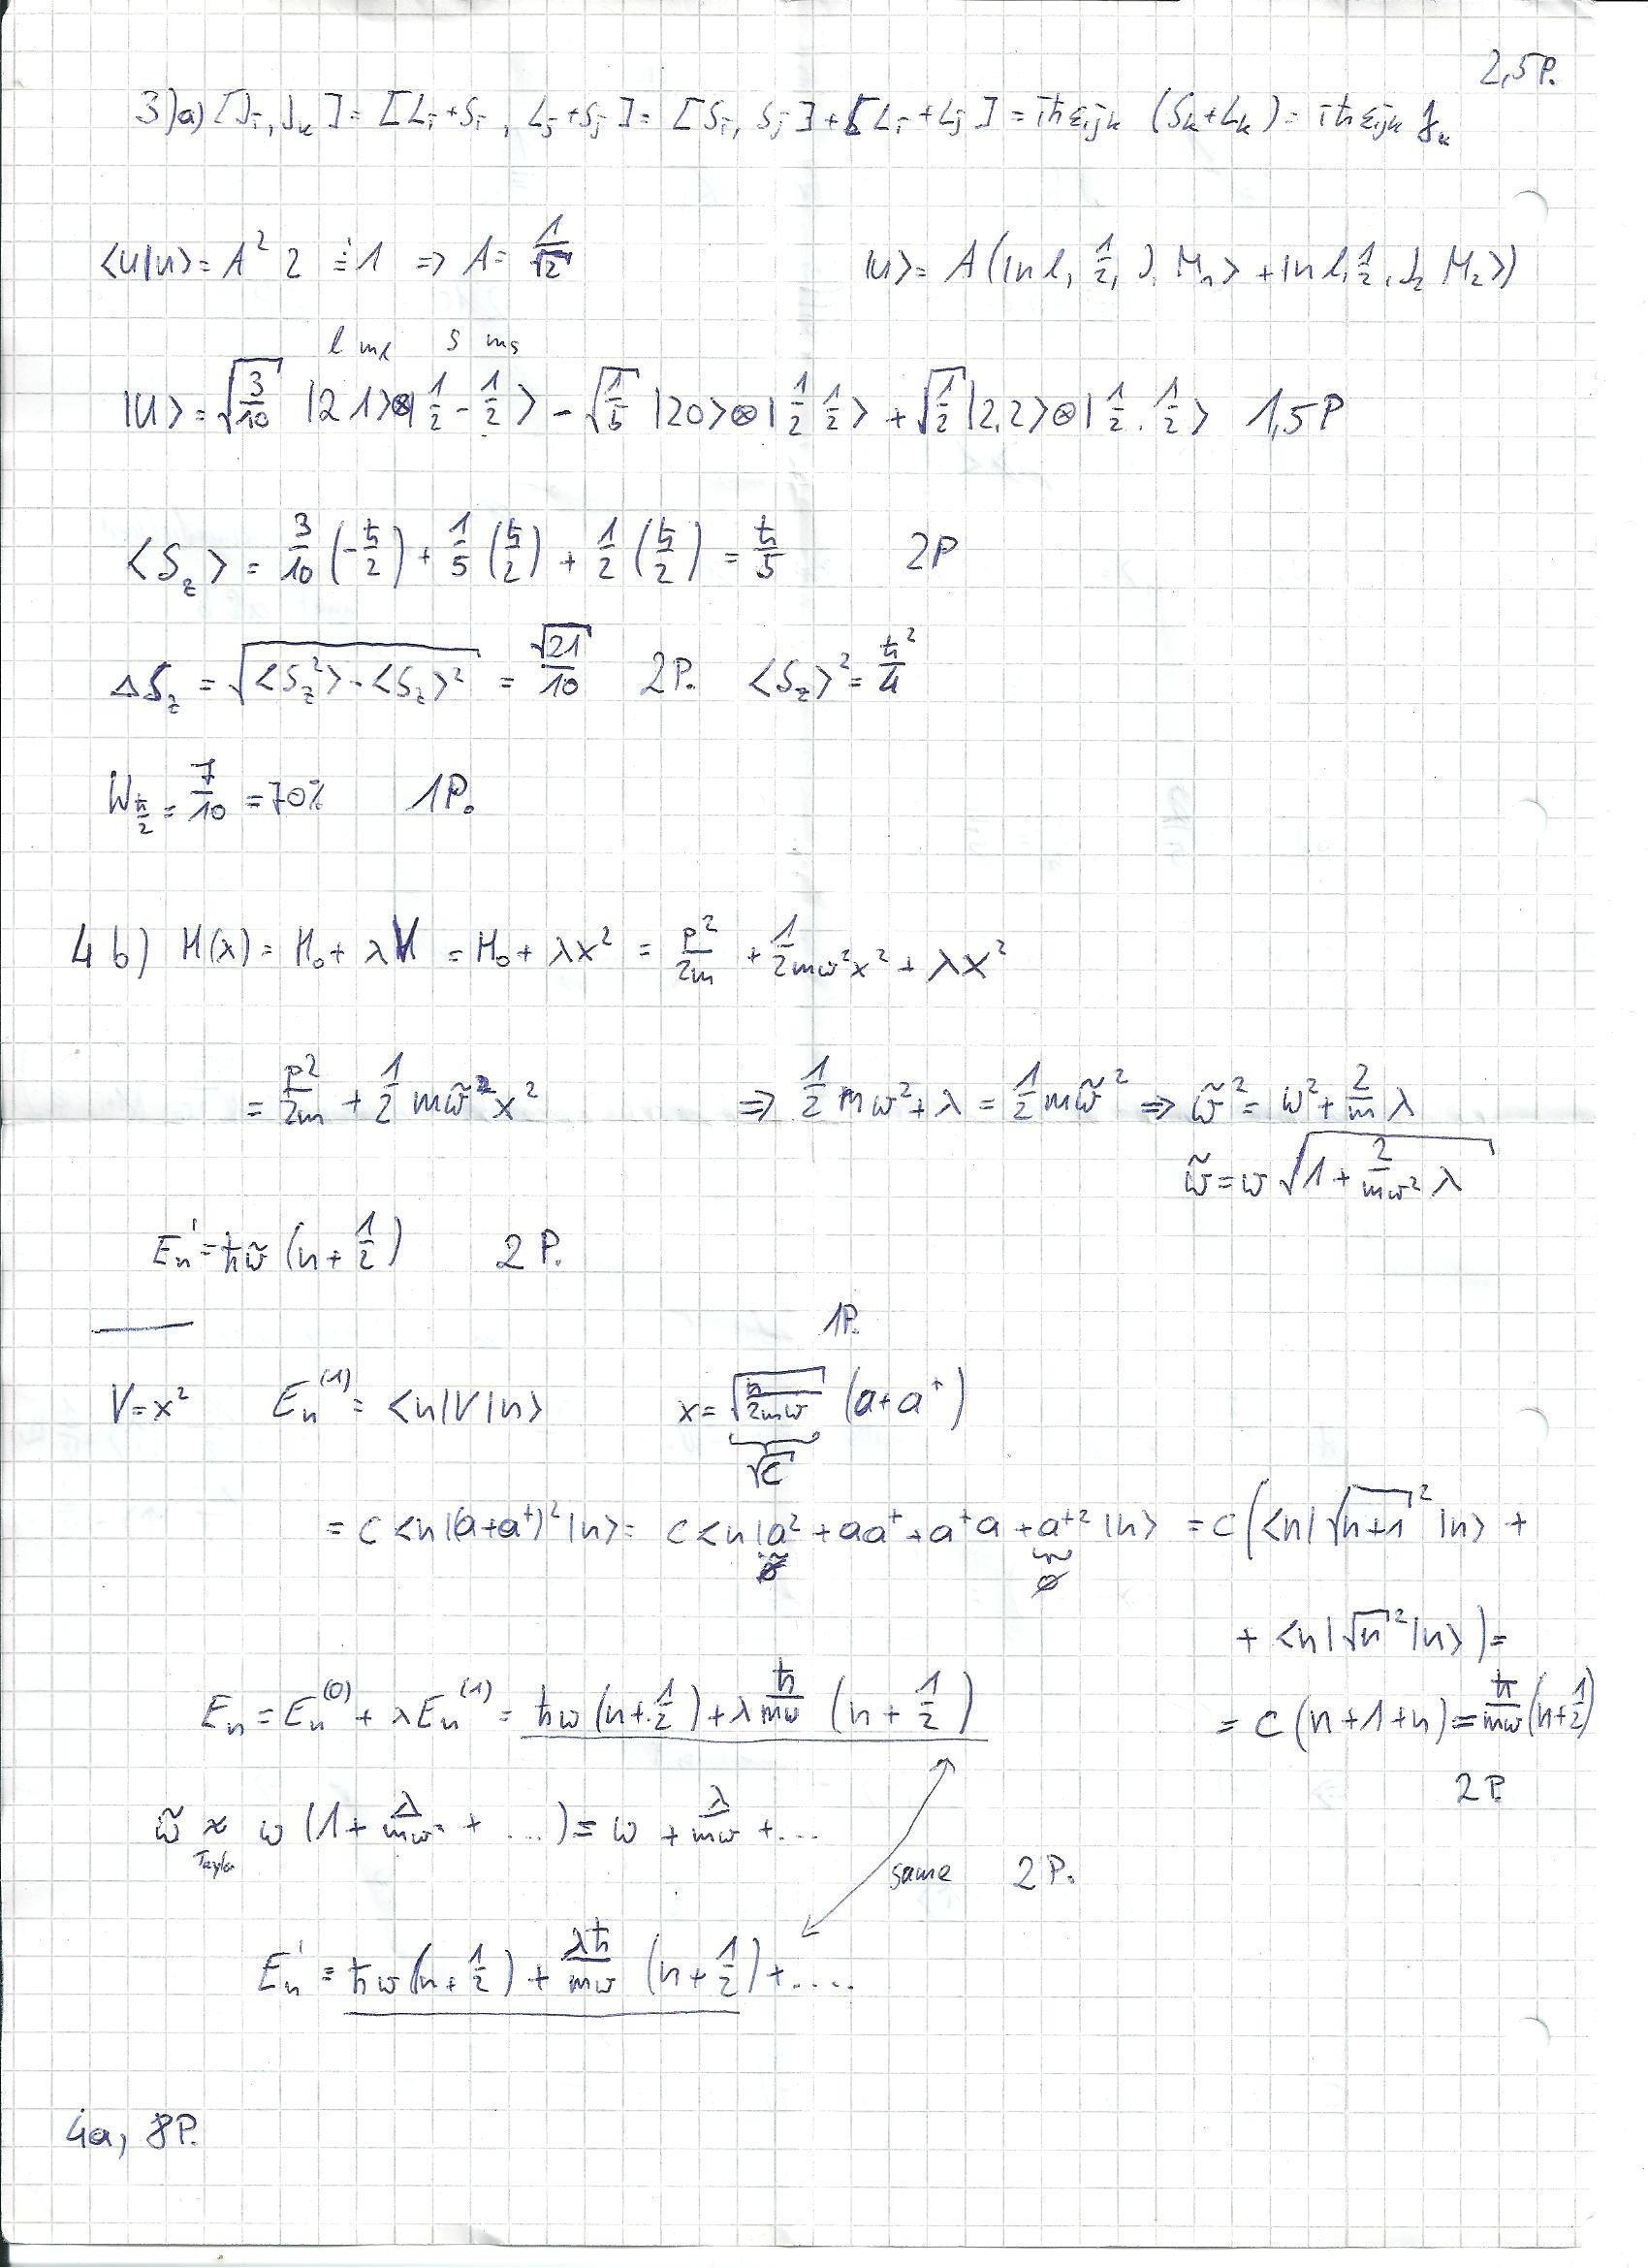 2,5P.
3)a) [J_i, J_k] = [L_i+S_i, L_j+S_j] = [S_i, S_j] + [L_i + L_j] = iħε_ijk (S_k+L_k) = iħε_ijk J_k
<u|u> = A² 2 ≟ 1 ⇒ A = 1/√2 |u> = A(|n l, 1/2, J, M_1> + |n l, 1/2, J_2 M_2>)
l m_l s m_s
|u> = √(3/10) |2 1>⊗|1/2 -1/2> - √(1/5) |20>⊗|1/2 1/2> + √(1/2) |2,2>⊗|1/2, 1/2> 1,5P
<S_z> = 3/10 (-ħ/2) + 1/5 (ħ/2) + 1/2 (ħ/2) = ħ/5 2P
ΔS_z = √(<S_z²> - <S_z>²) = √21/10 2P. <S_z>² = ħ²/4
W_ħ/2 = 7/10 = 70% 1P.
4 b) H(λ) = H_0 + λV = H_0 + λx² = p²/2m + 1/2 mω²x² + λx²
= p²/2m + 1/2 mω̃²x² ⇒ 1/2 mω² + λ = 1/2 mω̃² ⇒ ω̃² = ω² + 2/m λ
ω̃ = ω √(1 + 2/(mω²) λ)
E_n' = ħω̃ (n + 1/2) 2 P.
1P.
V = x² E_n^(1) = <n|V|n> x = √(ħ/2mω) (a + a†)
√C
= C <n|(a+a†)²|n> = C <n|a² + aa† + a†a + a†²|n> = C (<n|√(n+1)²|n> +
∅ ∅
+ <n|√n²|n>) =
E_n = E_n^(0) + λE_n^(1) = ħω (n + 1/2) + λ ħ/mω (n + 1/2) = C (n+1+n) = ħ/mω (n+1/2)
2P.
ω̃ ≈ ω (1 + λ/mω² + ...) = ω + λ/mω + ...
Taylor
same 2P.
E_n' = ħω(n + 1/2) + λħ/mω (n + 1/2) + ....
4a, 8P.